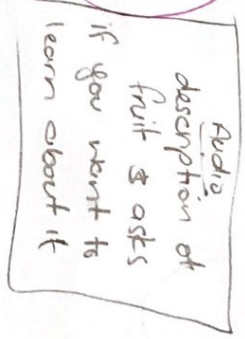 Audio
description of
fruit & asks
if you want to
learn about it